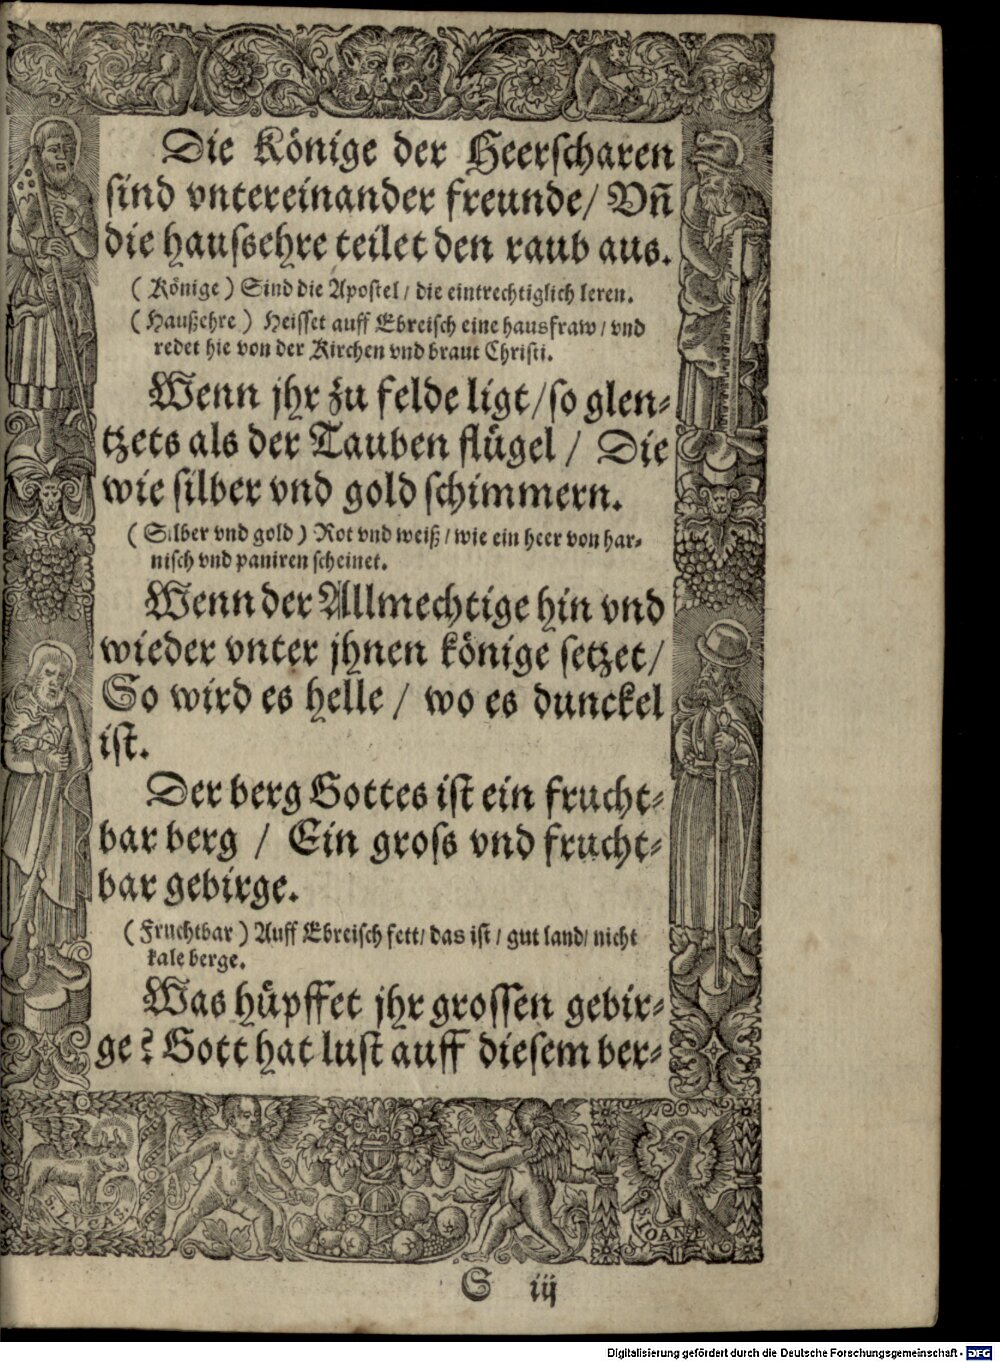 Die Könige der Heerscharen
sind vntereinander freunde/ Vñ
die haussehre teilet den raub aus.
(Könige) Sind die Apostel/ die eintrechtiglich leren.
(Haußehre) Heisset auff Ebreisch eine hausfraw/ vnd
redet hie von der Kirchen vnd braut Christi.
Wenn jhr zu felde ligt/ so glen⸗
tzets als der Tauben flügel/ Die
wie silber vnd gold schimmern.
(Silber vnd gold) Rot vnd weiß/ wie ein heer von har⸗
nisch vnd paniren scheinet.
Wenn der Allmechtige hin vnd
wieder vnter jhnen könige setzet/
So wird es helle/ wo es dunckel
ist.
Der berg Gottes ist ein frucht⸗
bar berg/ Ein gross vnd frucht⸗
bar gebirge.
(Fruchtbar) Auff Ebreisch fett/ das ist/ gut land/ nicht
kale berge.
Was hüpffet jhr grossen gebir⸗
ge? Gott hat lust auff diesem ber⸗
S. LVCAS.
IOANE
S iij
Digitalisierung gefördert durch die Deutsche Forschungsgemeinschaft - DFG